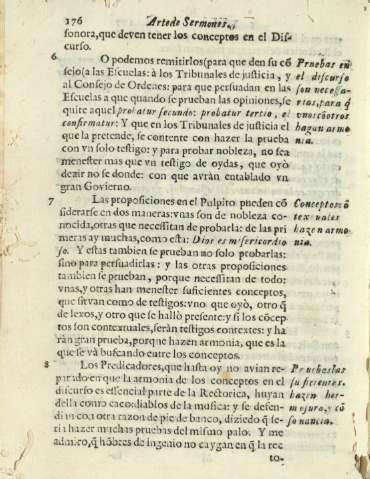 176 Arte de Sermones,
sonora, que deven tener los conceptos en el Dis-
curso.
6 O podemos remitirlos (para que den su cō
sejo) a las Escuelas: à los Tribunales de justicia, y
al Consejo de Ordenes: para que persuadan en las
Escuelas a que quando se prueban las opiniones, se
quite aquel probatur secundo: probatur tertio, el
confirmatur: Y que en los Tribunales de justicia el
que la pretende, se contente con hazer la prueba
con vn solo testigo: y para probar nobleza, no sea
menester mas que vn testigo de oydas, que oyò
dezir no se donde: con que avràn entablado vn
gran Govierno.
Pruebas en
el discurso
son necessa-
rias, para q̄
vnos cō otros
hagan armo
nia.
7 Las proposiciones en el Pulpito pueden cō
siderarse en dos maneras: vnas son de nobleza co-
nocida, otras que necessitan de probarla: de las pri
meras ay muchas, como esta: Dios es misericordio
so. Y estas tambien se prueban no solo probarlas:
sino para persuadirlas: y las otras proposiciones
tambien se prueban, porque necessitan de todo:
vnas, y otras han menester suficientes conceptos,
que sirvan como de testigos: vno que oyò, otro q̄
de lexos, y otro que se hallò presente: y si los cōcep
tos son contextuales, seràn testigos contextes: y ha
ràn gran prueba, porque hazen armonia, que es la
que se và buscando entre los conceptos.
Conceptos cō
textuales
hazen armo-
nia.
8 Los Predicadores, que hasta oy no avian re-
parado en que la armonia de los conceptos en el
discurso es essencial parte de la Rectorica, huyan
della como de la musica: y se defen-
dian con otra razon de pie de banco, diziedo q̄ se-
ria hazer muchas pruebas del mismo palo. Y me
admiro, q̄ hōbres de ingenio no caygan en q̄ la rec
to-
Pruebas las
suficientes,
hazen her-
mosura, y cō
sonancia.